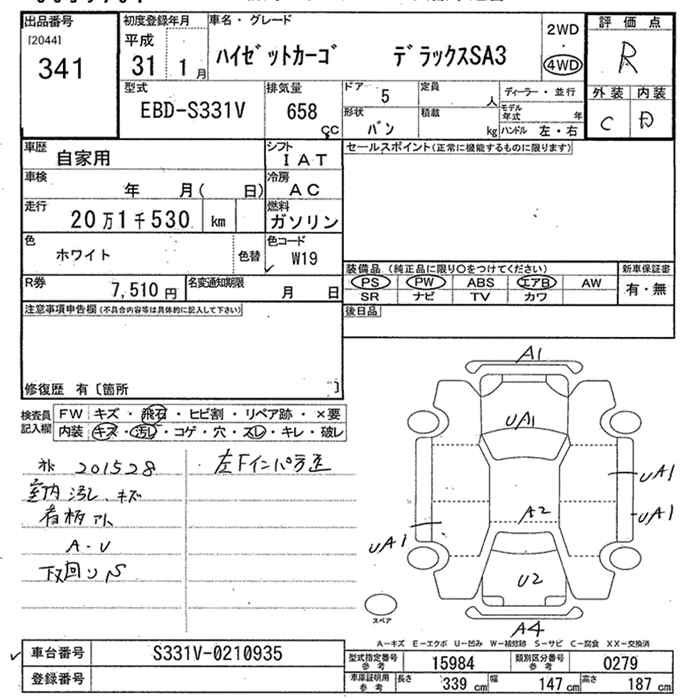 出品番号
[2044]
341
初度登録年月
平成
31 1月
車名・グレード
ハイゼットカーゴ デラックスSA3
2WD
・
4WD
評価点
R
外装 内装
C D
型式
EBD-S331V
排気量
658 cc
ドア 5
定員 人
ディーラー・並行
形状 バン
積載 kg
モデル年式 年
ハンドル 左・右
車歴
自家用
シフト
IAT
セールスポイント(正常に機能するものに限ります)
車検
年 月( 日)
冷房
AC
走行
20万1千530 km
燃料
ガソリン
色
ホワイト
色替
色コード
W19
装備品 (純正品に限り○をつけてください)
新車保証書
PS PW ABS エアB AW
有・無
SR ナビ TV カワ
R券
7,510円
名変通知期限
月 日
後日品
注意事項申告欄(不具合内容等は具体的に記入して下さい)
修復歴 有〔箇所 〕
検査員記入欄
FW キズ・飛石・ヒビ割・リペア跡・×要
内装 キズ・汚レ・コゲ・穴・スレ・キレ・破レ
201528
左Fインパラ歪
室内汚レ、キズ
看板アト
A-U
下回りS
A1
UA1
UA1
A2
UA1
UA1
U2
A4
スペア
A-キズ E-エクボ U-凹み W-補修跡 S-サビ C-腐食 XX-交換済
車台番号
S331V-0210935
登録番号
型式指定番号 参考
15984
類別区分番号 参考
0279
車庫証明用 参考
長さ 339cm 幅 147cm 高さ 187cm